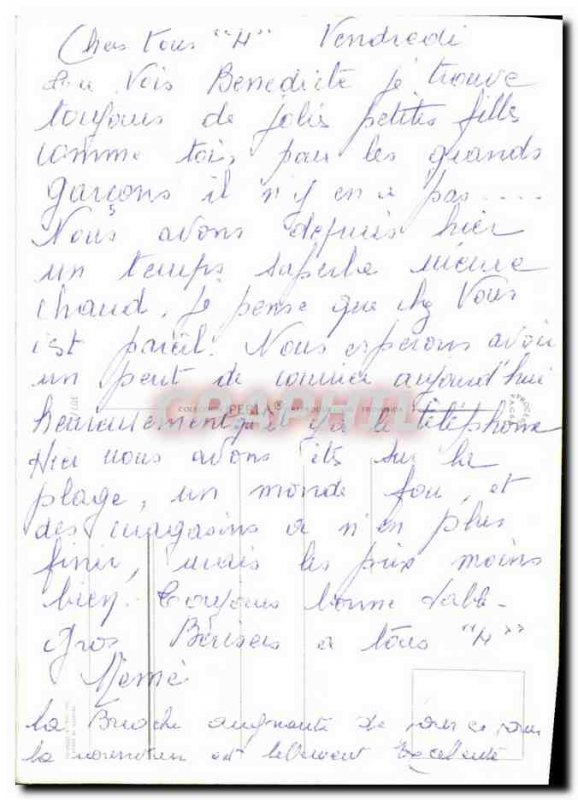 Chers tous "4" Vendredi
Tu Vois Benedicte je trouve
toujours de jolies petites filles
comme toi, pour les grands
garçons il n'y en a pas....
Nous avons depuis hier
un temps superbe même
chaud. Je pense que chez Vous
c'est pareil. Nous esperons avoir
un peut de courrier aujourd'hui
heureusement qu'il y a le téléphone
Hier nous avons étés sur la
plage, un monde fou, et
des magasins a n'en plus
finir, mais les prix moins
bien. Toujours bonne table.
Gros Baisers a tous "4"
Mémé
la Brioche augmente de jour en jour
la nourriture est tellement Excellente
PERLA
CPAPHIL